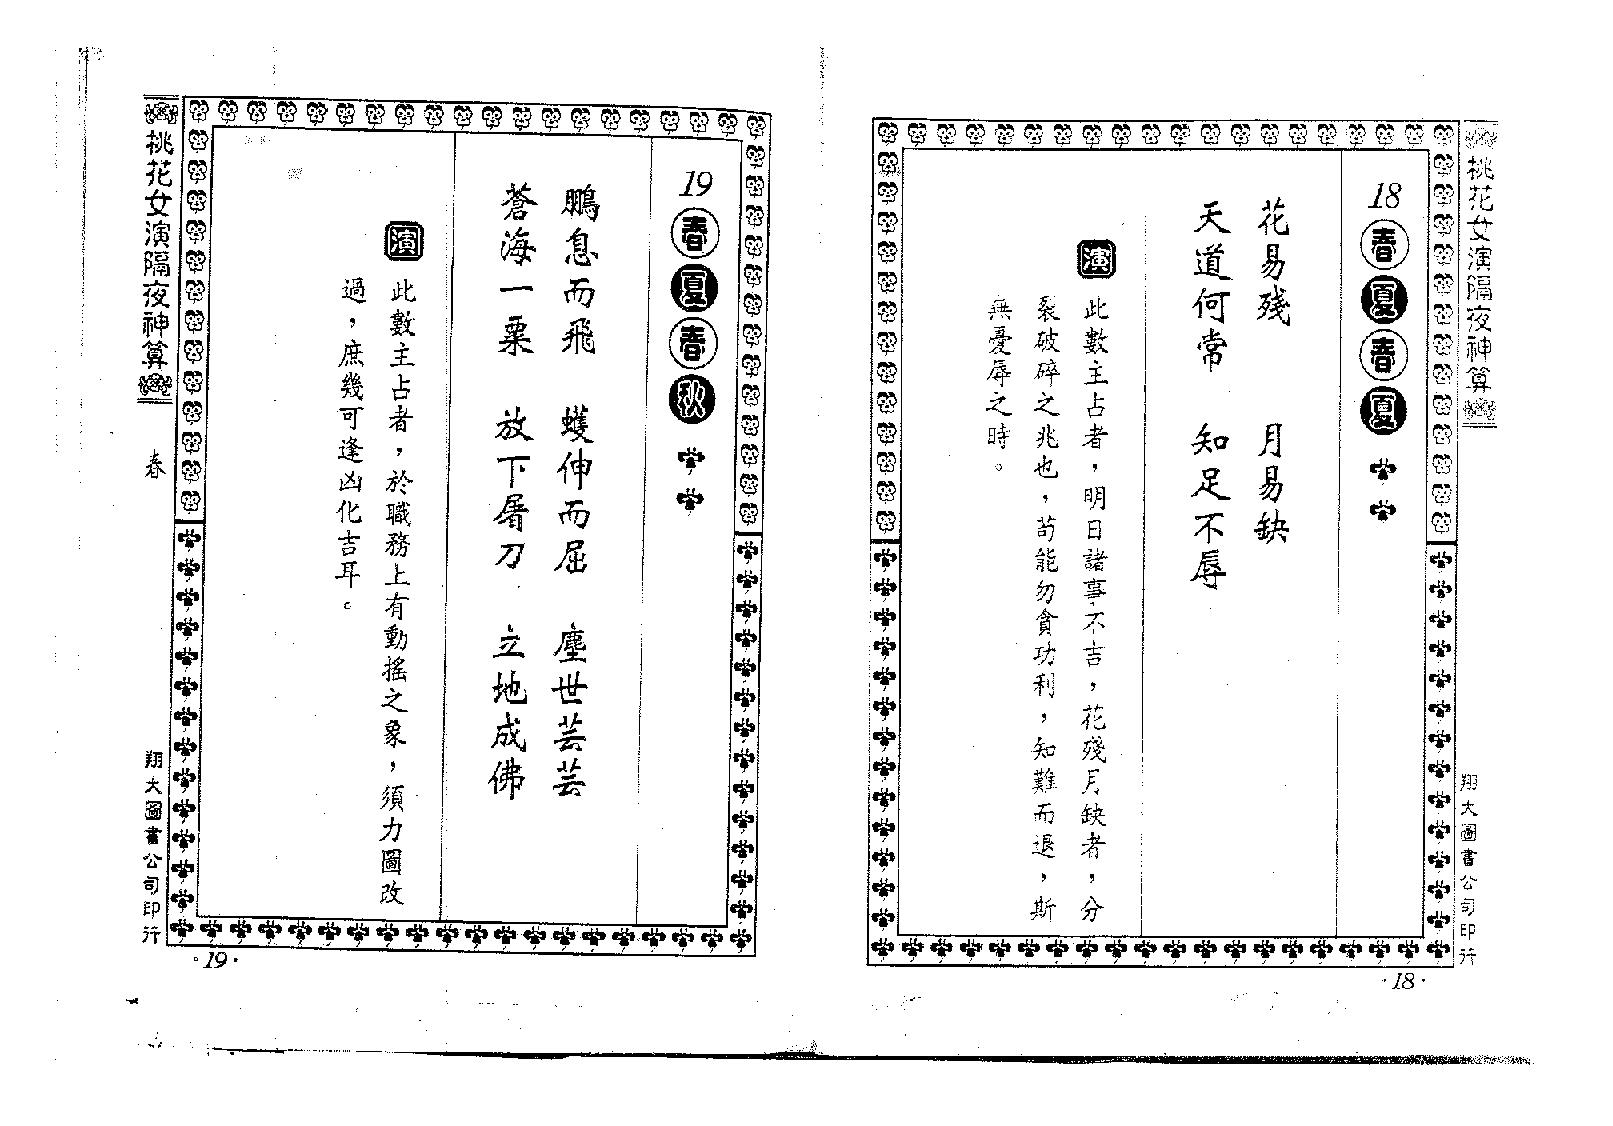 桃花女演隔夜神算
翔大圖書公司印行
18
春夏春夏
花易殘 月易缺
天道何常 知足不辱
演
此數主占者，明日諸事不吉，花殘月缺者，分
裂破碎之兆也，苟能勿貪功利，知難而退，斯
無憂辱之時。
·18·
19
春夏春秋
鵬息而飛 蠖伸而屈 塵世芸芸
蒼海一粟 放下屠刀 立地成佛
演
此數主占者，於職務上有動搖之象，須力圖改
過，庶幾可逢凶化吉耳。
桃花女演隔夜神算
春
翔大圖書公司印行
·19·